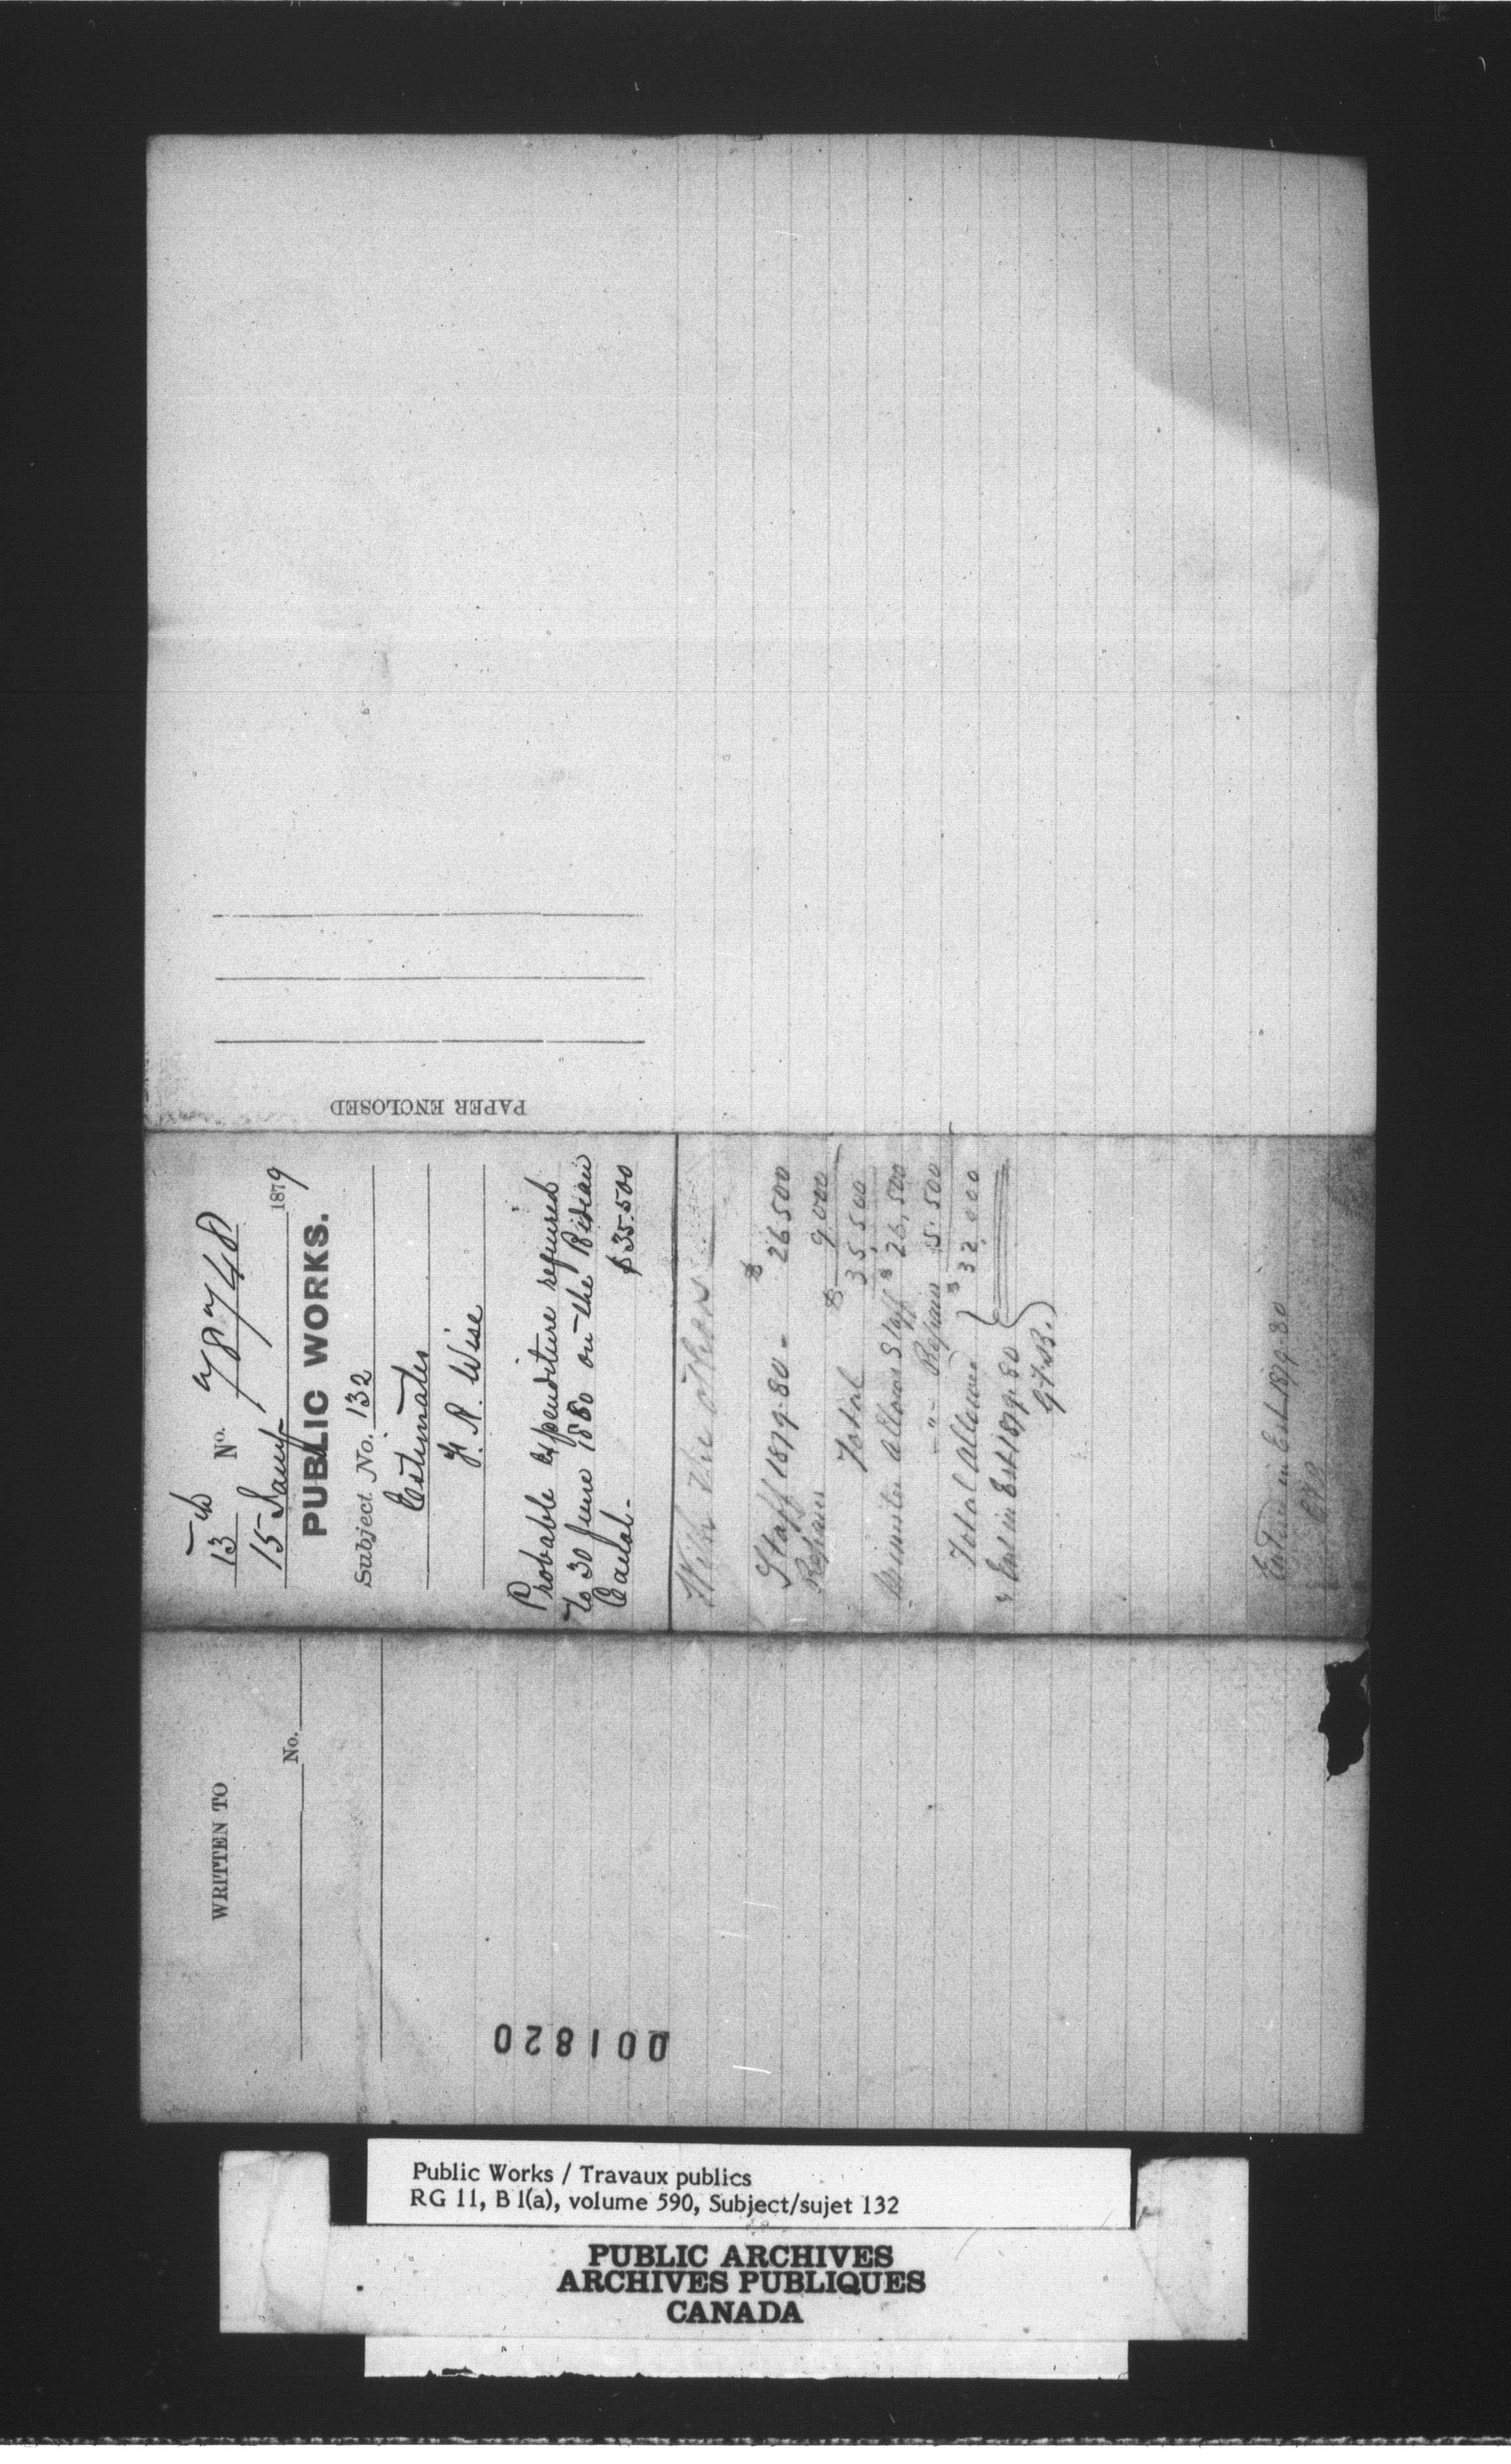 PAPER ENCLOSED
13th No. 78748
15 Jany 1879
PUBLIC WORKS.
Subject No. 132
Estimates
F. A. Wise
Probable expenditure required
to 30 June 1880 on the Rideau
Canal. $35.500
With the others
$
Staff 1879-80 - 26500
Repairs 9.000
Total $ 35,500
Minister allows Staff $ 26,500
" Repairs 5.500
Total allowed $ 32,000
Ent in Est 1879-80
G.F.B.
in Est 1879-80
WRITTEN TO
No.
001820
Public Works / Travaux publics
RG 11, B 1(a), volume 590, Subject/sujet 132
PUBLIC ARCHIVES
ARCHIVES PUBLIQUES
CANADA